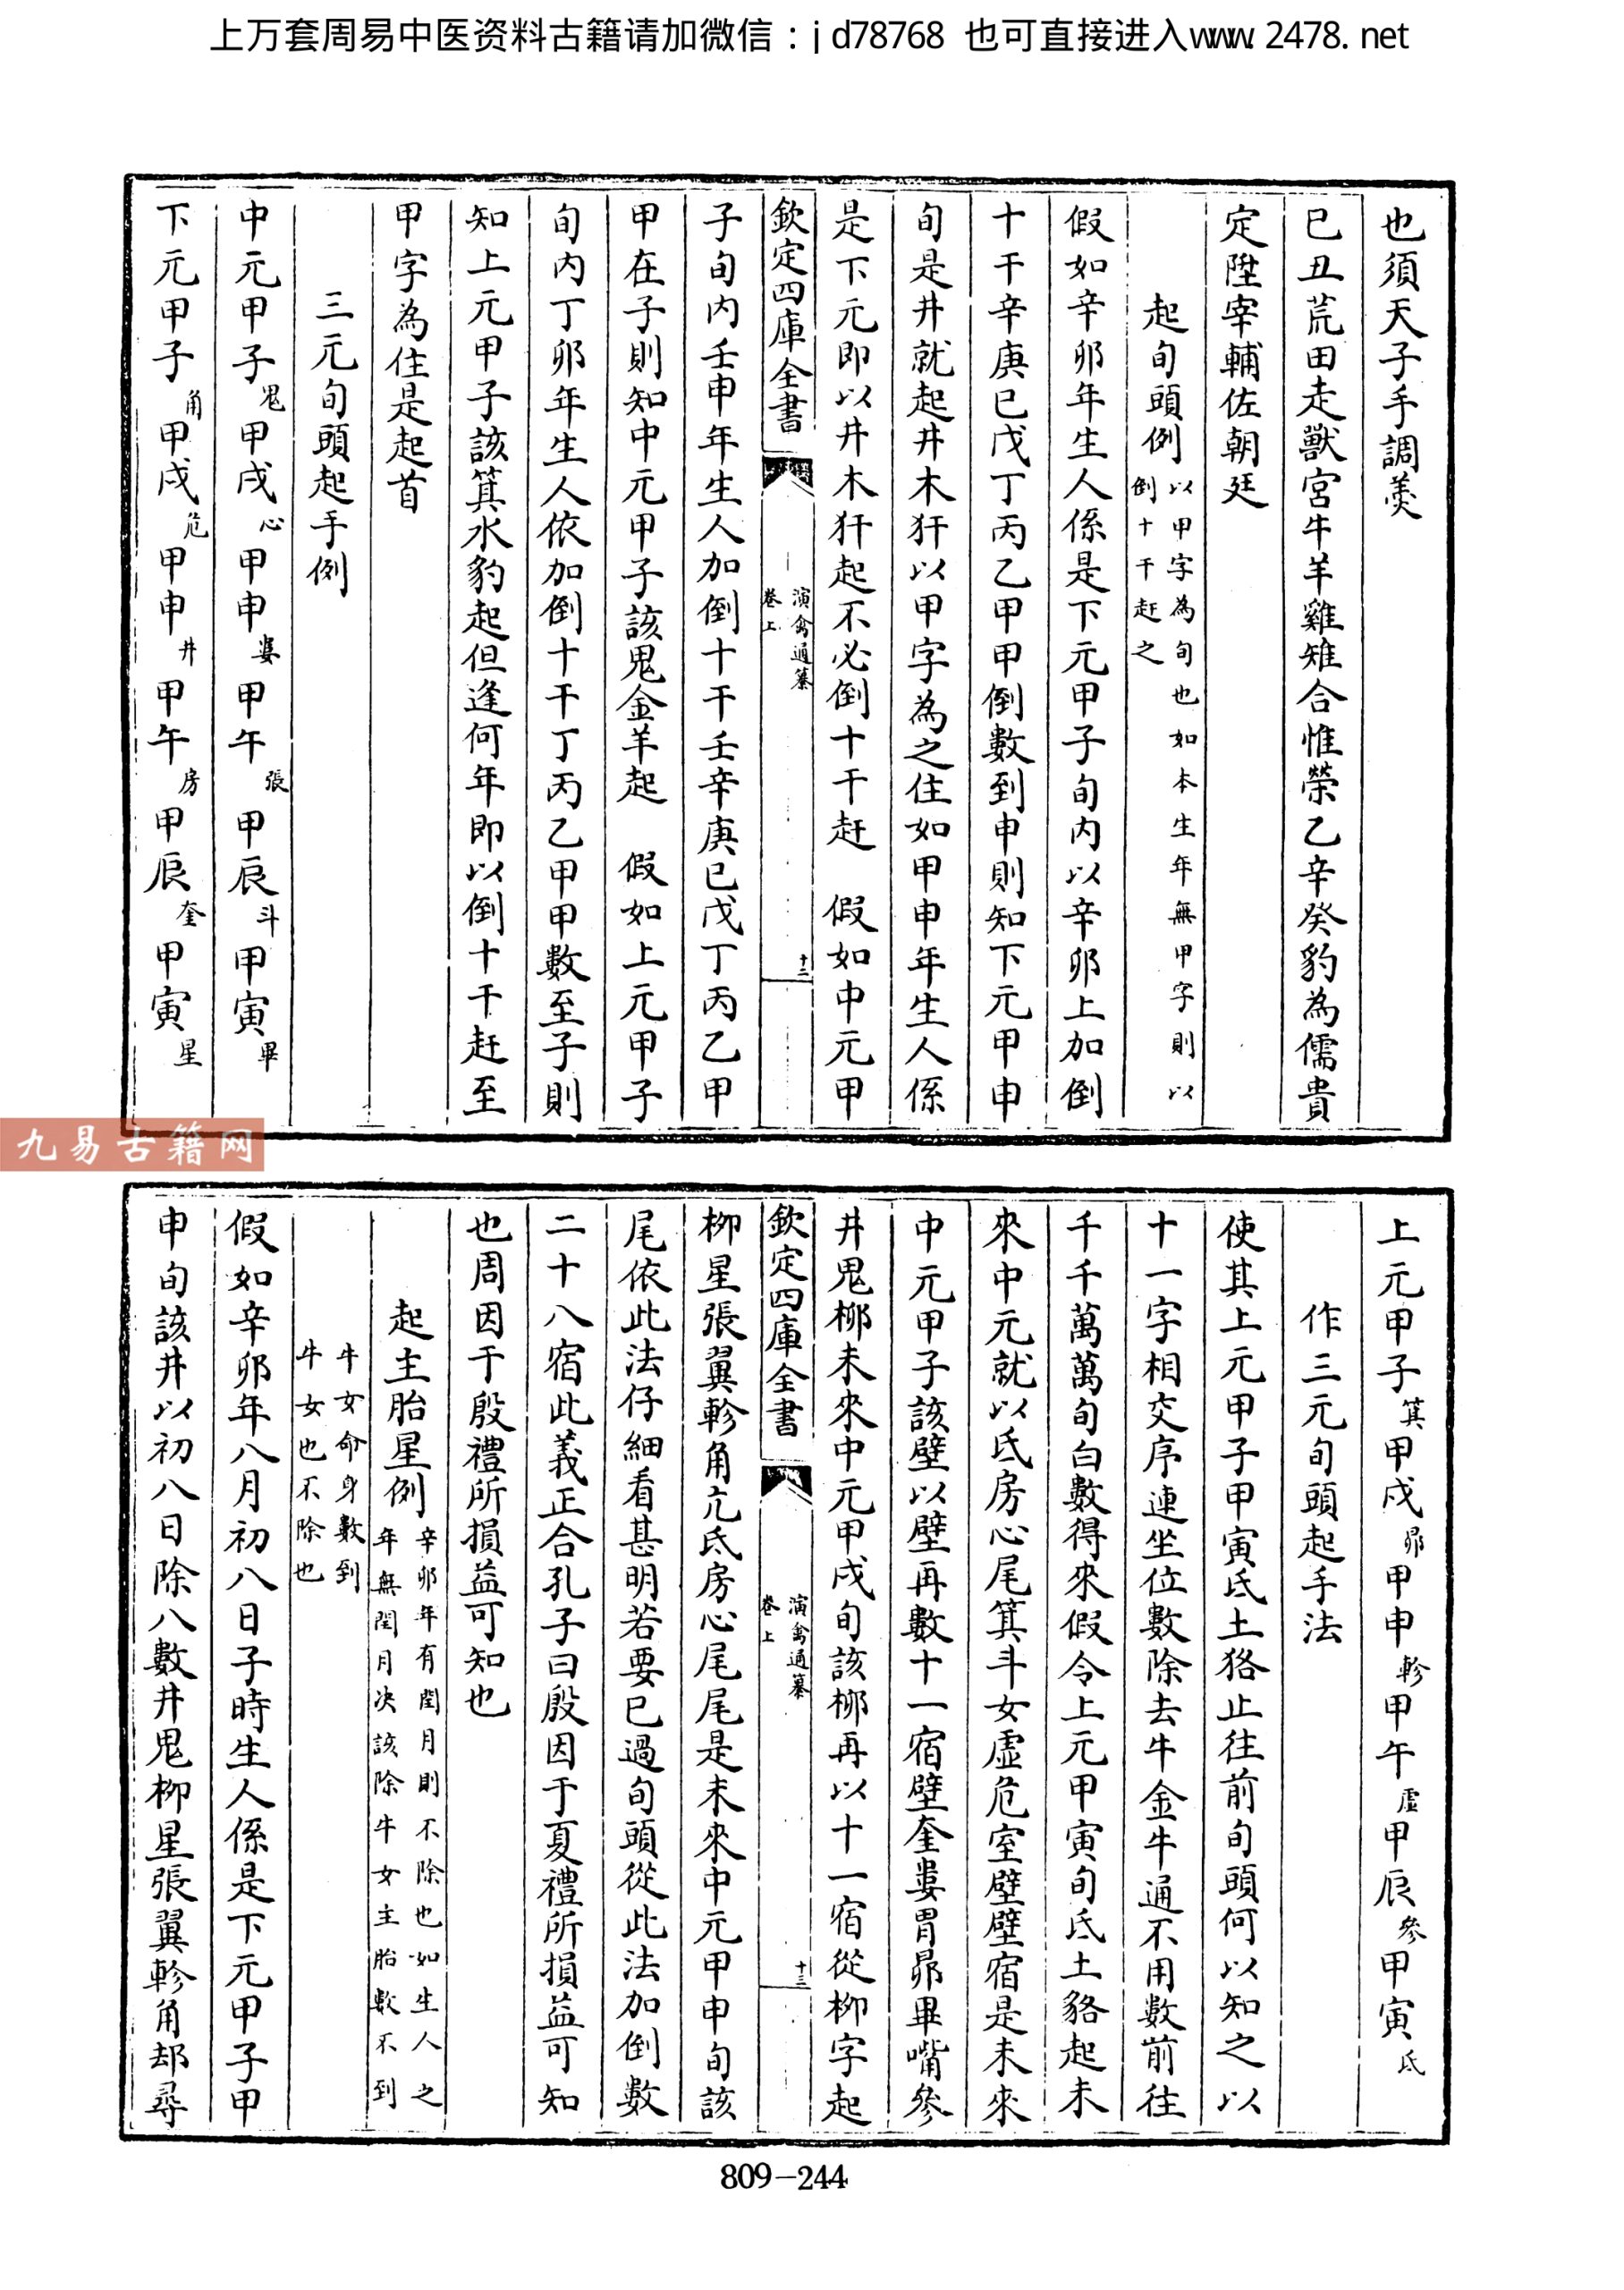 上万套周易中医资料古籍请加微信：jd78768 也可直接进入www.2478.net
也須天子手調羮
已丑荒田走獸宮牛羊雞雉合惟榮乙辛癸豹為儒貴
定陞宰輔佐朝廷
起旬頭例以甲字為旬也如本生年無甲字則以
倒十干赶之
假如辛卯年生人係是下元甲子旬内以辛卯上加倒
十干辛庚已戊丁丙乙甲甲倒數到申則知下元甲申
旬是井就起井木犴以甲字為之住如甲申年生人係
是下元即以井木犴起不必倒十干赶　假如中元甲
欽定四庫全書
演禽通纂
卷上
十二
子旬内壬申年生人加倒十干壬辛庚已戊丁丙乙甲
甲在子則知中元甲子該鬼金羊起　假如上元甲子
旬内丁卯年生人依加倒十干丁丙乙甲甲數至子則
知上元甲子該箕水豹起但逢何年即以倒十干赶至
甲字為住是起首
三元旬頭起手例
中元甲子鬼甲戌心甲申婁甲午張甲辰斗甲寅畢
下元甲子角甲戌危甲申井甲午房甲辰奎甲寅星
九易古籍网
上元甲子箕甲戌昴甲申軫甲午虛甲辰參甲寅氐
作三元旬頭起手法
使其上元甲子甲寅氐土狢止往前旬頭何以知之以
十一字相交序連坐位數除去牛金牛通不用數前往
千千萬萬旬白數得來假令上元甲寅旬氐土貉起未
來中元就以氐房心尾箕斗女虛危室壁壁宿是未來
中元甲子該壁以壁再數十一宿壁奎婁胃昴畢嘴參
井鬼柳未來中元甲戌旬該柳再以十一宿從柳字起
欽定四庫全書
演禽通纂
卷上
十三
柳星張翼軫角亢氐房心尾尾是未來中元甲申旬該
尾依此法仔細看甚明若要已過旬頭從此法加倒數
二十八宿此義正合孔子曰殷因于夏禮所損益可知
也周因于殷禮所損益可知也
起主胎星例辛卯年有閏月則不除也如生人之
年無閏月决該除牛女主胎數不到
牛女命身數到
牛女也不除也
假如辛卯年八月初八日子時生人係是下元甲子甲
申旬該井以初八日除八數井鬼柳星張翼軫角却尋
809-244